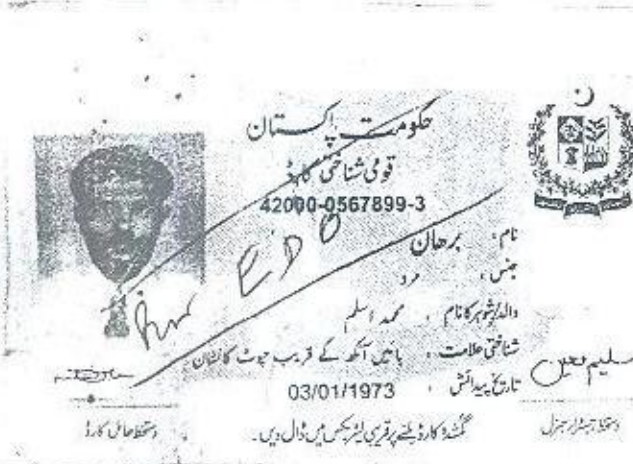 حکومت پاکستان
قومی شناختی کارڈ
42000-0567899-3
نام : برھان
جنس : مرد
والد/شوہر کا نام : محمد اسلم
شناختی علامت : بائیں آنکھ کے قریب چوٹ کا نشان
تاریخ پیدائش : 03/01/1973
دستخط حامل کارڈ
دستخط رجسٹرار جنرل
گمشدہ کارڈ ملنے پر قریبی لیٹر بکس میں ڈال دیں۔